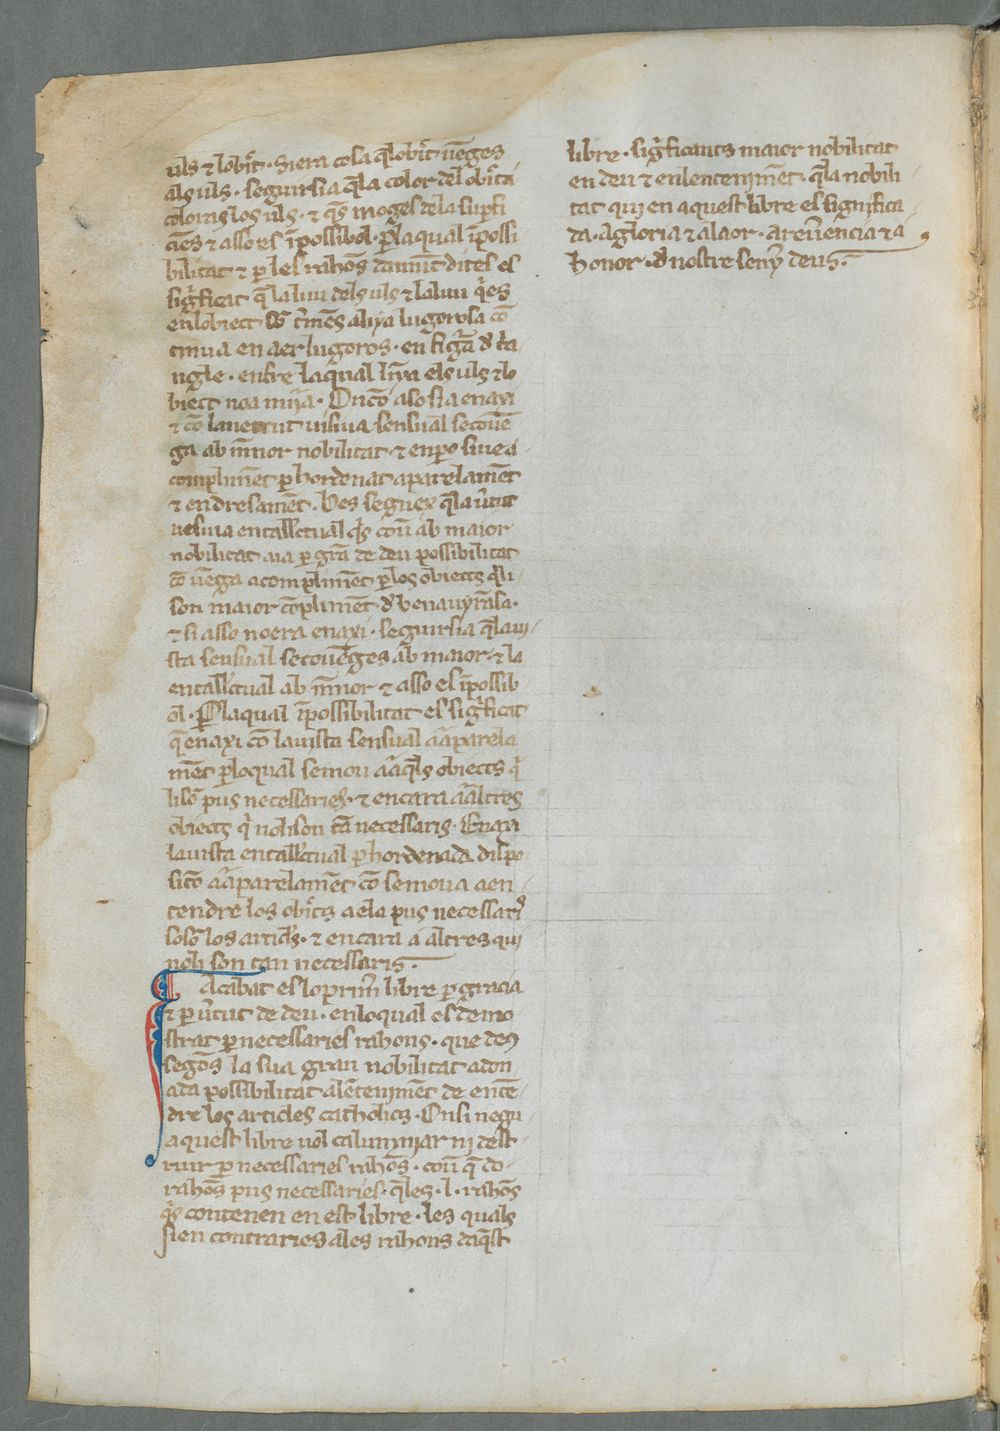 uls ⁊ lobi̅t · si era cosa q̅ lobi̅t ue̅ges
als uls · seguirsia q̅ la color del obi̅t a
coloras los uls · ⁊ q̅s moges de la supfi
cies ⁊ asso es i̅possibol · p̲ la qual i̅possi
bilitat ⁊ p̲ les rahos̅ damu̅t dites es
sig̅ficat q̅ la lum dels uls ⁊ la lum q̅ es
en lobiect
tinua en aer lugoros · en fig̅a d̅ t̅ia
ngle · enfre la qual liya els uls ⁊ lo
biect no a miia · On co̅ aso sia enaxi
⁊ co̅ la uertut uisiua sensual se coue̅
ga ab me̅nor nobilitat · ⁊ enpo̲ siue a
complime̅t p̲ hordenat aparelame̅t
⁊ endresame̅t · Des seguex q̅ la u̅tut
uesiua entall̅ctual q̅s coue̅ ab maior
nobilitat aia p̲ gra̅ de deu possibilitat
co̅ ue̅ga a complime̅t p̲ los obiects q̅ li
son maior co̅plime̅t · d̅ benauyra̅sa ·
⁊ si asso no era enaxi · seguirsia q̅ la ui
sta sensual se coue̅ges ab maior · ⁊ la
entall̅ctual ab me̅nor ⁊ asso es i̅possib
ol · P̲ la qual i̅possibilitat es sig̅ficat
q̅ enaxi co̅ la uista sensual a aparela
me̅t p̲ lo qual se mou a aq̅ls obiects q̅
li so̅ pus necessaries · ⁊ encara a altres
obiects q̅ no li son ta̅ necessaris · Enaxi
la uista entall̅ctual p̲ hordenada dispo
sicio̅ a aparelame̅t co̅ se moua a en
tendre los obi̅cts a ela pus necessaris
so so̅ los articl̅s · ⁊ encara a altres qui
no li son tan necessaris ·
Acabat es lo prim̅ libre p̲ gracia
⁊ p̲ u̅tut de deu · en lo qual es demo
strat p̲ necessaries rahons · que deus
sego̅s la sua gran nobilitat a don
ada possibilitat al e̅tenime̅t de ente̅
dre los articles catholics · On si negu
aquest libre uol calumniar ni dest
ruir p̲ necessaries rahos̅ · coue̅ q̅ do
rahos̅ pus necessaries · q̅ les · l · rahos̅
q̅s contenen en est libre · les quals
sien contraries a les rahons daq̅st
libre · sig̅ficants maior nobilitat
en deu ⁊ en lentenime̅t · q̅ la nobili
tat qui en aquest libre es significa
da · a gloria ⁊ a laor · a reu̅encia ⁊ a
honor · d̅ nostre seny̅ deus ·